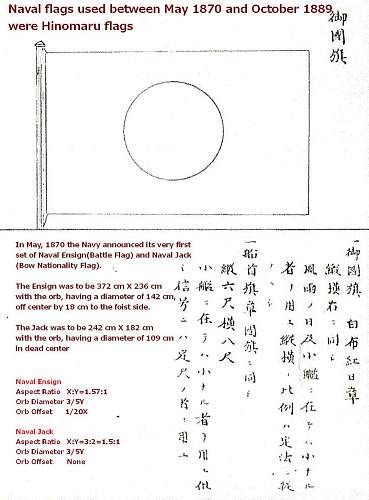 Naval flags used between May 1870 and October 1889
were Hinomaru flags
御國旗
In May, 1870 the Navy announced its very first
set of Naval Ensign(Battle Flag) and Naval Jack
(Bow Nationality Flag).
The Ensign was to be 372 cm X 236 cm
with the orb, having a diameter of 142 cm,
off center by 18 cm to the foist side.
The Jack was to be 242 cm X 182 cm
with the orb, having a diameter of 109 cm
in dead center
Naval Ensign
Aspect Ratio X:Y=1.57:1
Orb Diameter 3/5Y
Orb Offset 1/20X
Naval Jack
Aspect Ratio X:Y=3:2=1.5:1
Orb Diameter 3/5Y
Orb Offset None
一御國旗 白布紅日章
縦横右ニ同シ
風雨ノ日及小艦ニ在テハ小ナル
者ヲ用ユ縦横ノ比例ハ定法ニ従
一船首旗章國旗ニ同シ
縦六尺横八尺
小艦ニ在テハ小ナル者ヲ用ユ但
シ信号ニハ定尺ノ者ヲ用ユ